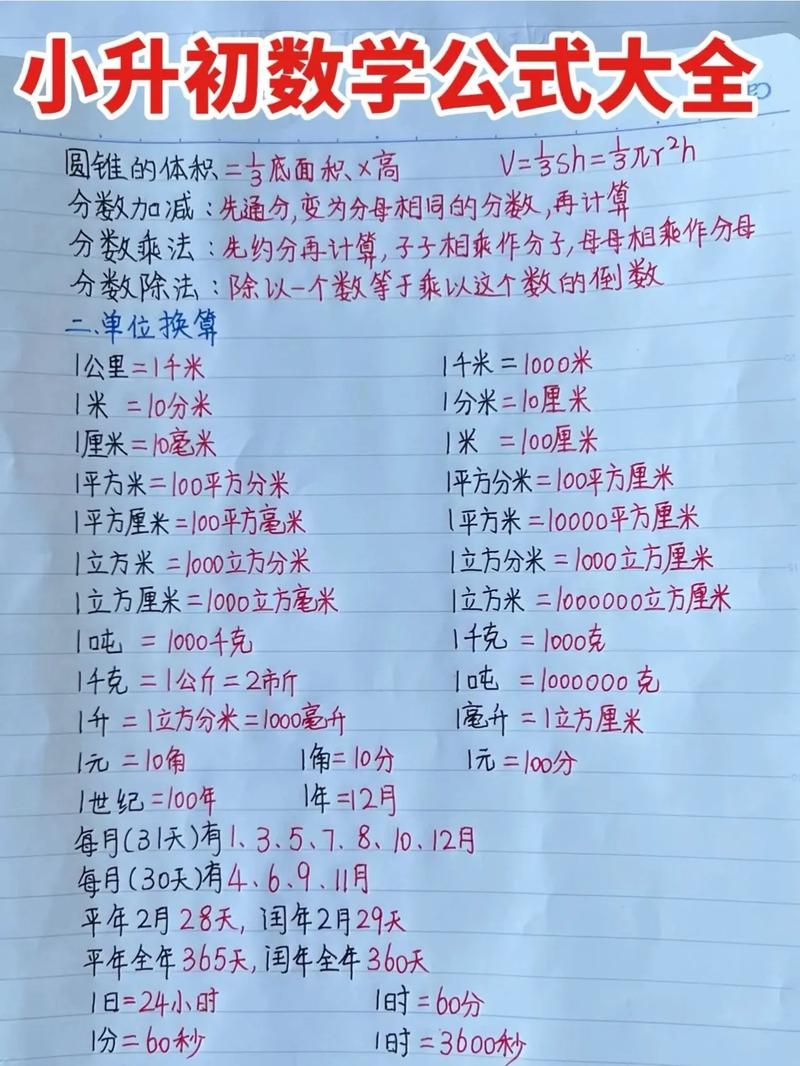 小升初数学公式大全
圆锥的体积=⅓底面积×高 V=⅓Sh=⅓πr²h
分数加减:先通分,变为分母相同的分数,再计算
分数乘法:先约分再计算,子子相乘作分子,母母相乘作分母
分数除法:除以一个数等于乘以这个数的倒数
二、单位换算
1公里=1千米 1千米=1000米
1米=10分米 1分米=10厘米
1厘米=10毫米 1米=100厘米
1平方米=100平方分米 1平方分米=100平方厘米
1平方厘米=100平方毫米 1平方米=10000平方厘米
1立方米=1000立方分米 1立方分米=1000立方厘米
1立方厘米=1000立方毫米 1立方米=1000000立方厘米
1吨=1000千克 1千克=1000克
1千克=1公斤=2市斤 1吨=1000000克
1升=1立方分米=1000毫升 1毫升=1立方厘米
1元=10角 1角=10分 1元=100分
1世纪=100年 1年=12月
每月(31天)有1、3、5、7、8、10、12月
每月(30天)有4、6、9、11月
平年2月28天,闰年2月29天
平年全年365天,闰年全年360天
1日=24小时 1时=60分
1分=60秒 1时=3600秒